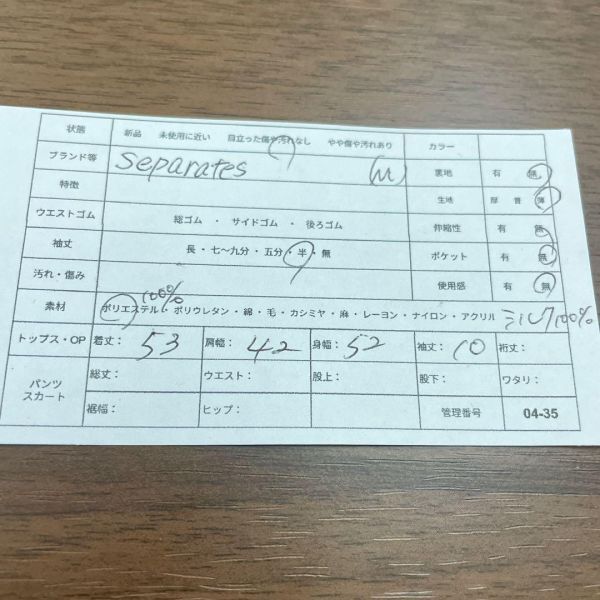 状態 新品 未使用に近い 目立った傷や汚れなし やや傷や汚れあり カラー
ブランド等 Separates (M) 裏地 有 無
特徴 生地 厚 普 薄
ウエストゴム 総ゴム ・ サイドゴム ・ 後ろゴム 伸縮性 有 無
袖丈 長・七〜九分・五分・半・無 ポケット 有 無
汚れ・傷み 使用感 有 無
100%
素材 ポリエステル・ポリウレタン・綿・毛・カシミヤ・麻・レーヨン・ナイロン・アクリル シルク100%
トップス・OP 着丈: 53 肩幅: 42 身幅: 52 袖丈: 10 裄丈:
パンツ スカート 総丈: ウエスト: 股上: 股下: ワタリ:
裾幅: ヒップ: 管理番号 04-35